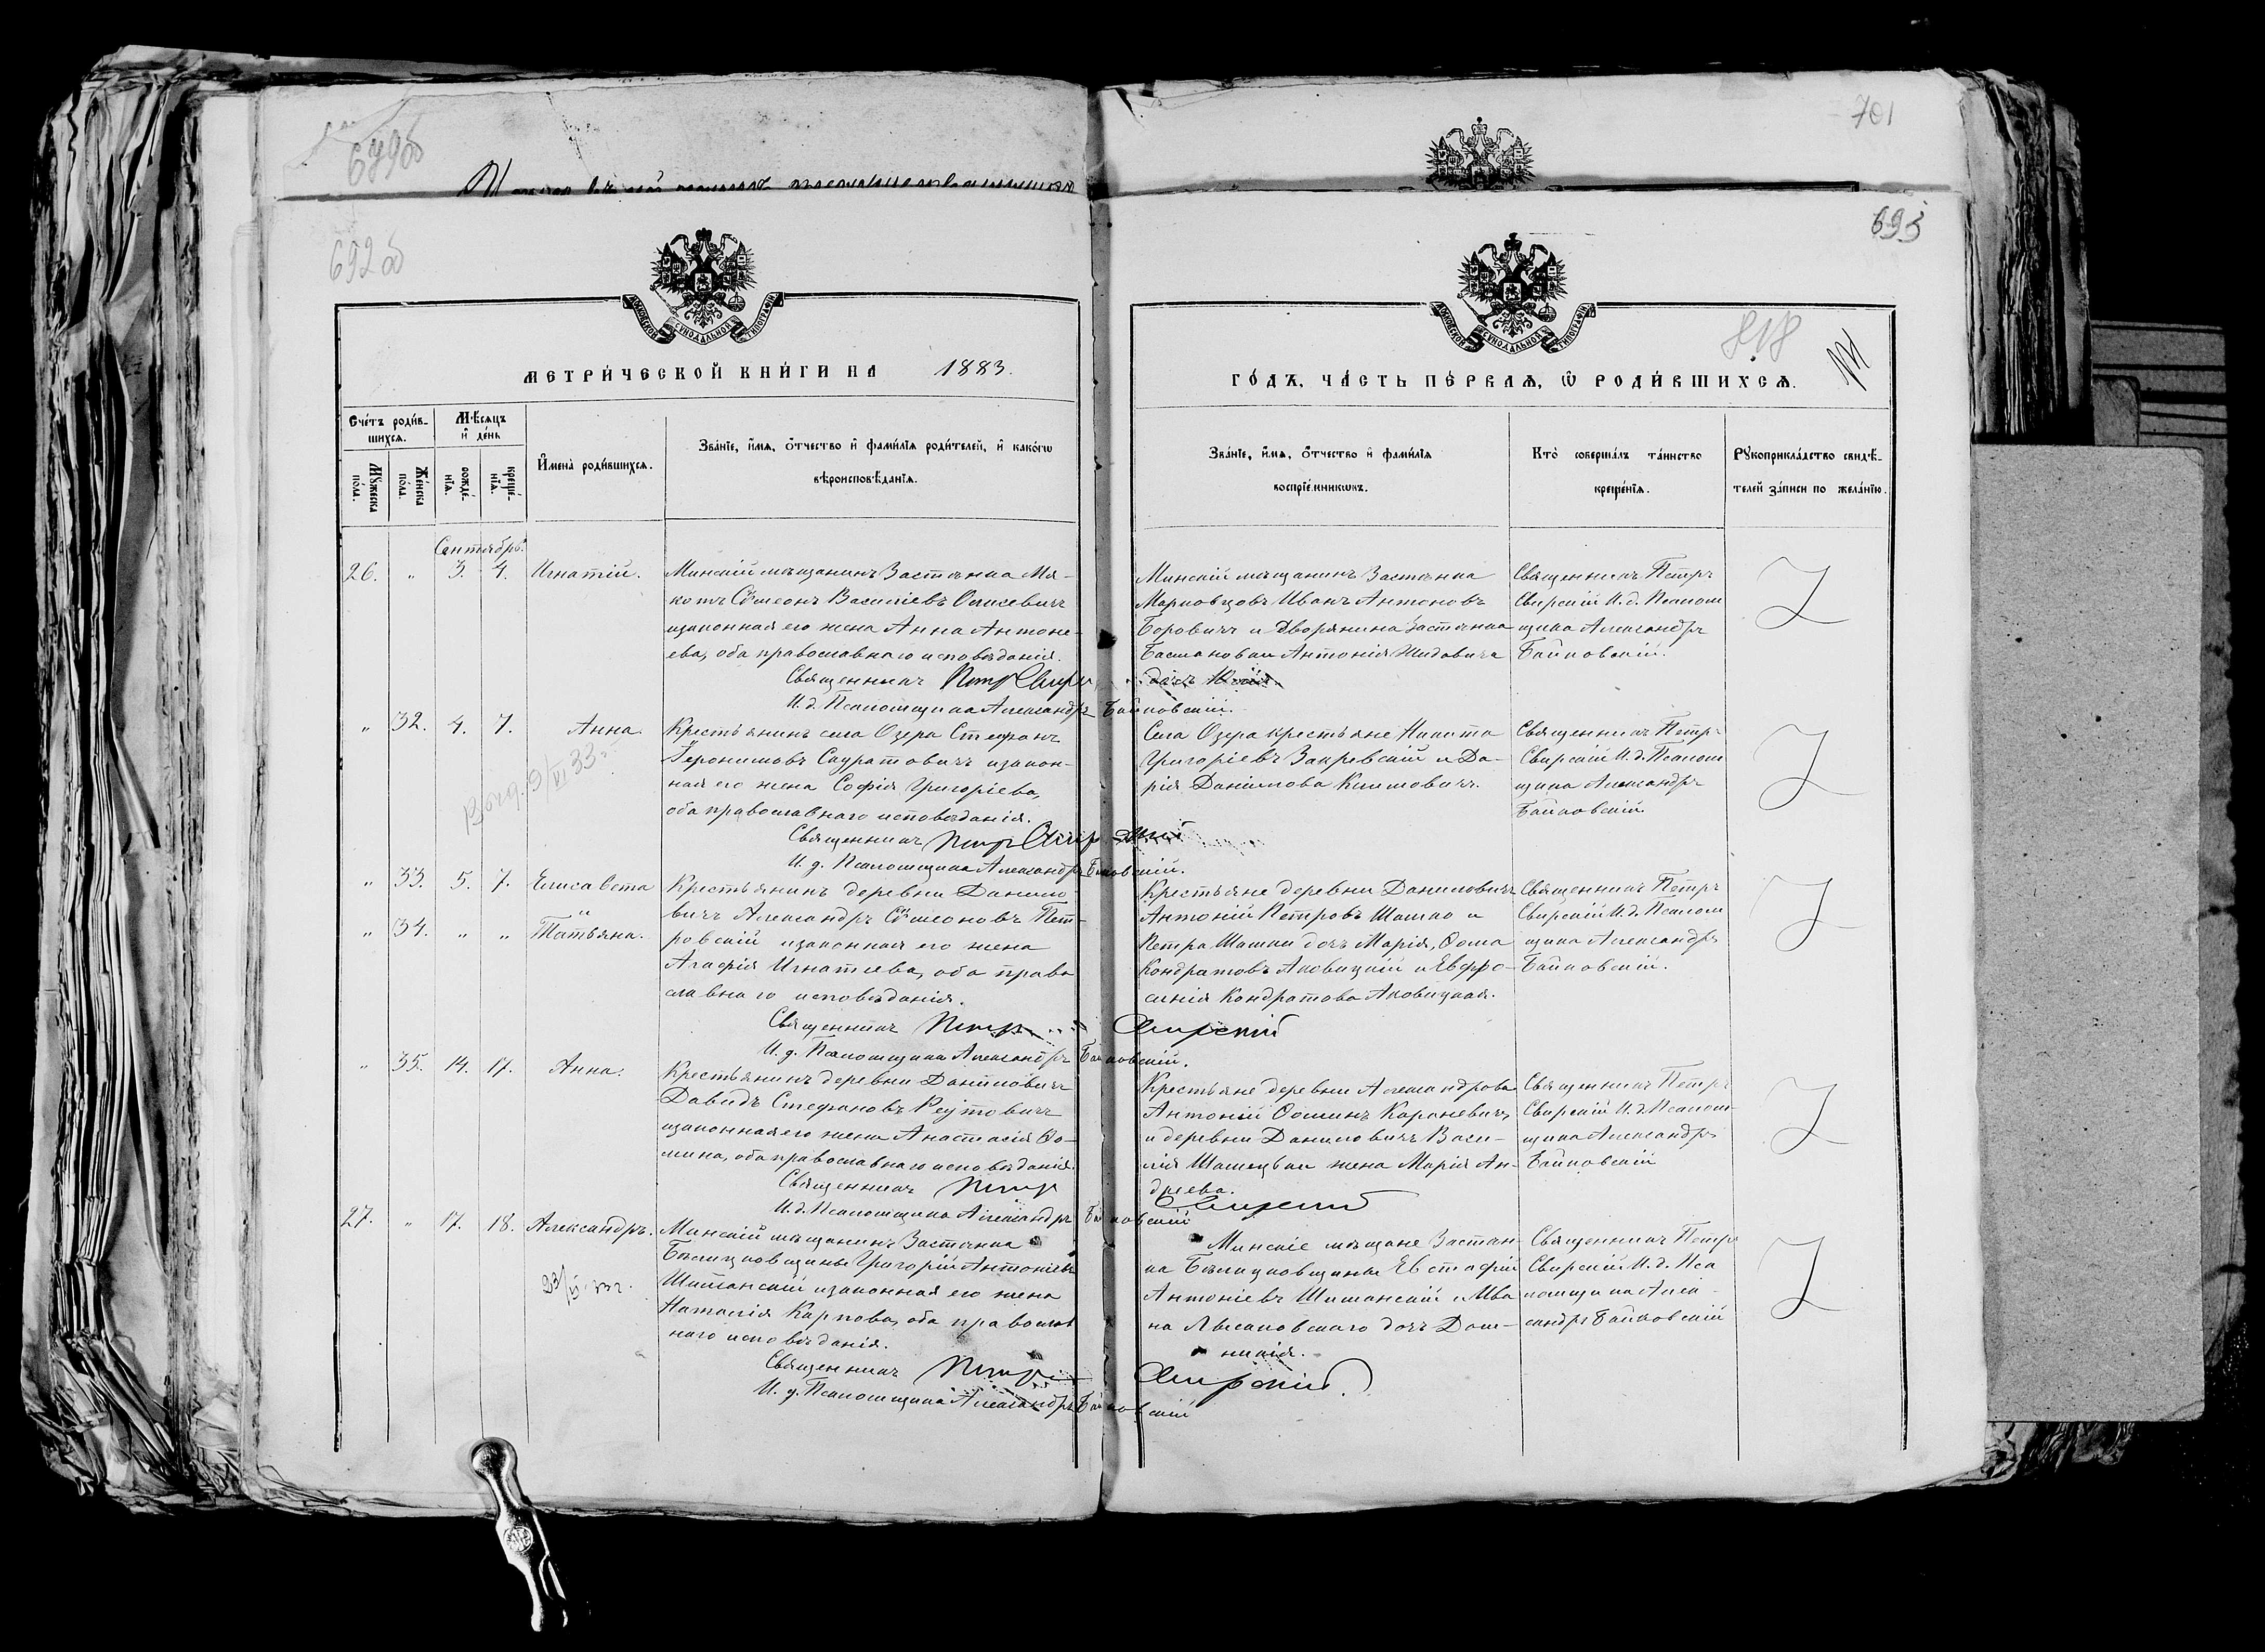 701
692об
693
818
МЕТРИ́ЧЕСКОЙ КНИ́ГИ НА 1883.
ГО́ДЪ, ЧА́СТЬ ПЕ́РВАЯ, Ѡ РОДИ́ВШИХСЯ.
Сче́тъ роди́в-
шихся.
Мѣ́сяцъ
и҆ де́нь
Мꙋ́жеска
по́ла.
Же́нска
по́ла.
рожде́-
нїѧ.
креще́-
нїѧ.
И҆мена̀ роди́вшихся.
Зва́нїе, и҆́мѧ, ѻ҆́тчество и҆ фами́лїѧ роди́телей, и҆ како́гѡ
вѣроисповѣ́данїѧ.
Зва́нїе, и҆́мѧ, ѻ҆́тчество и҆ фами́лїѧ
воспрїе́мникѡвъ.
Кто̀ соверша́лъ та́инство
креще́нїѧ.
Рꙋкоприкла́дство свидѣ́-
телей за́писи по жела́нїю.
Сентябрь.
26. " 3. 4. Игнатій.
Минскій мѣщанинъ Застѣнка Мя-
котъ Сѵмеонъ Василіевъ Осисевичъ
изаконная его жена Анна Антоне-
ева, оба православнаго исповѣданія.
Священникъ Петръ Свирскій
И. д. Псаломщика Александръ Байковскій.
Минскій мѣщанинъ Застѣнка
Марковцовъ Иванъ Антоновъ
Боровичъ и Дворянина Застѣнка
Антонія Шидовича
Священникъ Петръ
Свирскій И. д. Псалом
щика Александръ
Байковскій.
" 32. 4. 7. Анна.
Крестьянинъ села Озера Стефанъ
Іеронимовъ Скуратовичъ изакон-
ная его жена Софія Григоріева,
оба православнаго исповѣданія.
Священникъ Петръ Свирскій
И. д. Псаломщика Александръ Байковскій.
Села Озера крестьяне Никита
Григоріевъ Закревскій и Да-
рія Данилова Климовичъ.
Священникъ Петръ
Свирскій И. д. Псалом
щика Александръ
Байковскій
" 33. 5. 7. Елисавета
" 34. " " Татьяна.
Крестьянинъ деревни Данило
вичъ Александръ Сѵмеоновъ Пет-
ровскій изаконная его жена
Агафія Игнатиева, оба право
славнаго исповѣданія.
Священникъ Петръ Свирскій
И. д. Псаломщика Александръ Байковскій.
Крестьяне деревни Даниловичъ
Антоній Петровъ Шашко и
Петра Шашки дочь Марія, Ѳома
Кондратовъ Яковицкій и Евфро-
синія Кондратова Яковицкая.
Священникъ Петръ
Свирскій И. д. Псалом
щика Александръ
Байковскій.
" 35. 14. 17. Анна.
Крестьянинъ деревни Даниловичъ
Давидъ Стефановъ Реутовичъ
изаконная его жена Анастасія Ѳо-
мина, оба православнаго исповѣданія.
Священникъ Петръ Свирскій
И. д. Псаломщика Александръ Байковскій
Крестьяне деревни Александрова
Антоній Ѳоминъ Короневичъ
и деревни Даниловичъ Васи-
лія жена Марія Ан-
дреева.
Священникъ Петръ
Свирскій И. д. Псалом-
щика Александръ
Байковскій
27. " 17. 18. Александръ.
Минскій мѣщанинъ Застѣнка
Бѣлицковщины Григорій Антоніевъ
Шиманскій изаконная его жена
Наталія Карпова, оба православ
наго исповѣданія.
Священникъ Петръ Свирскій.
И. д. Псаломщика Александръ Байковскій
Минскіе мѣщане Застѣн-
ка Бѣлицковщины Евстафій
Антоніевъ Шиманскій и Ива
на Лысаковскаго дочь Дом-
никія.
Священникъ Петръ
Свирскій И. д. Пса
ломщика Алек-
сандръ Байковскій